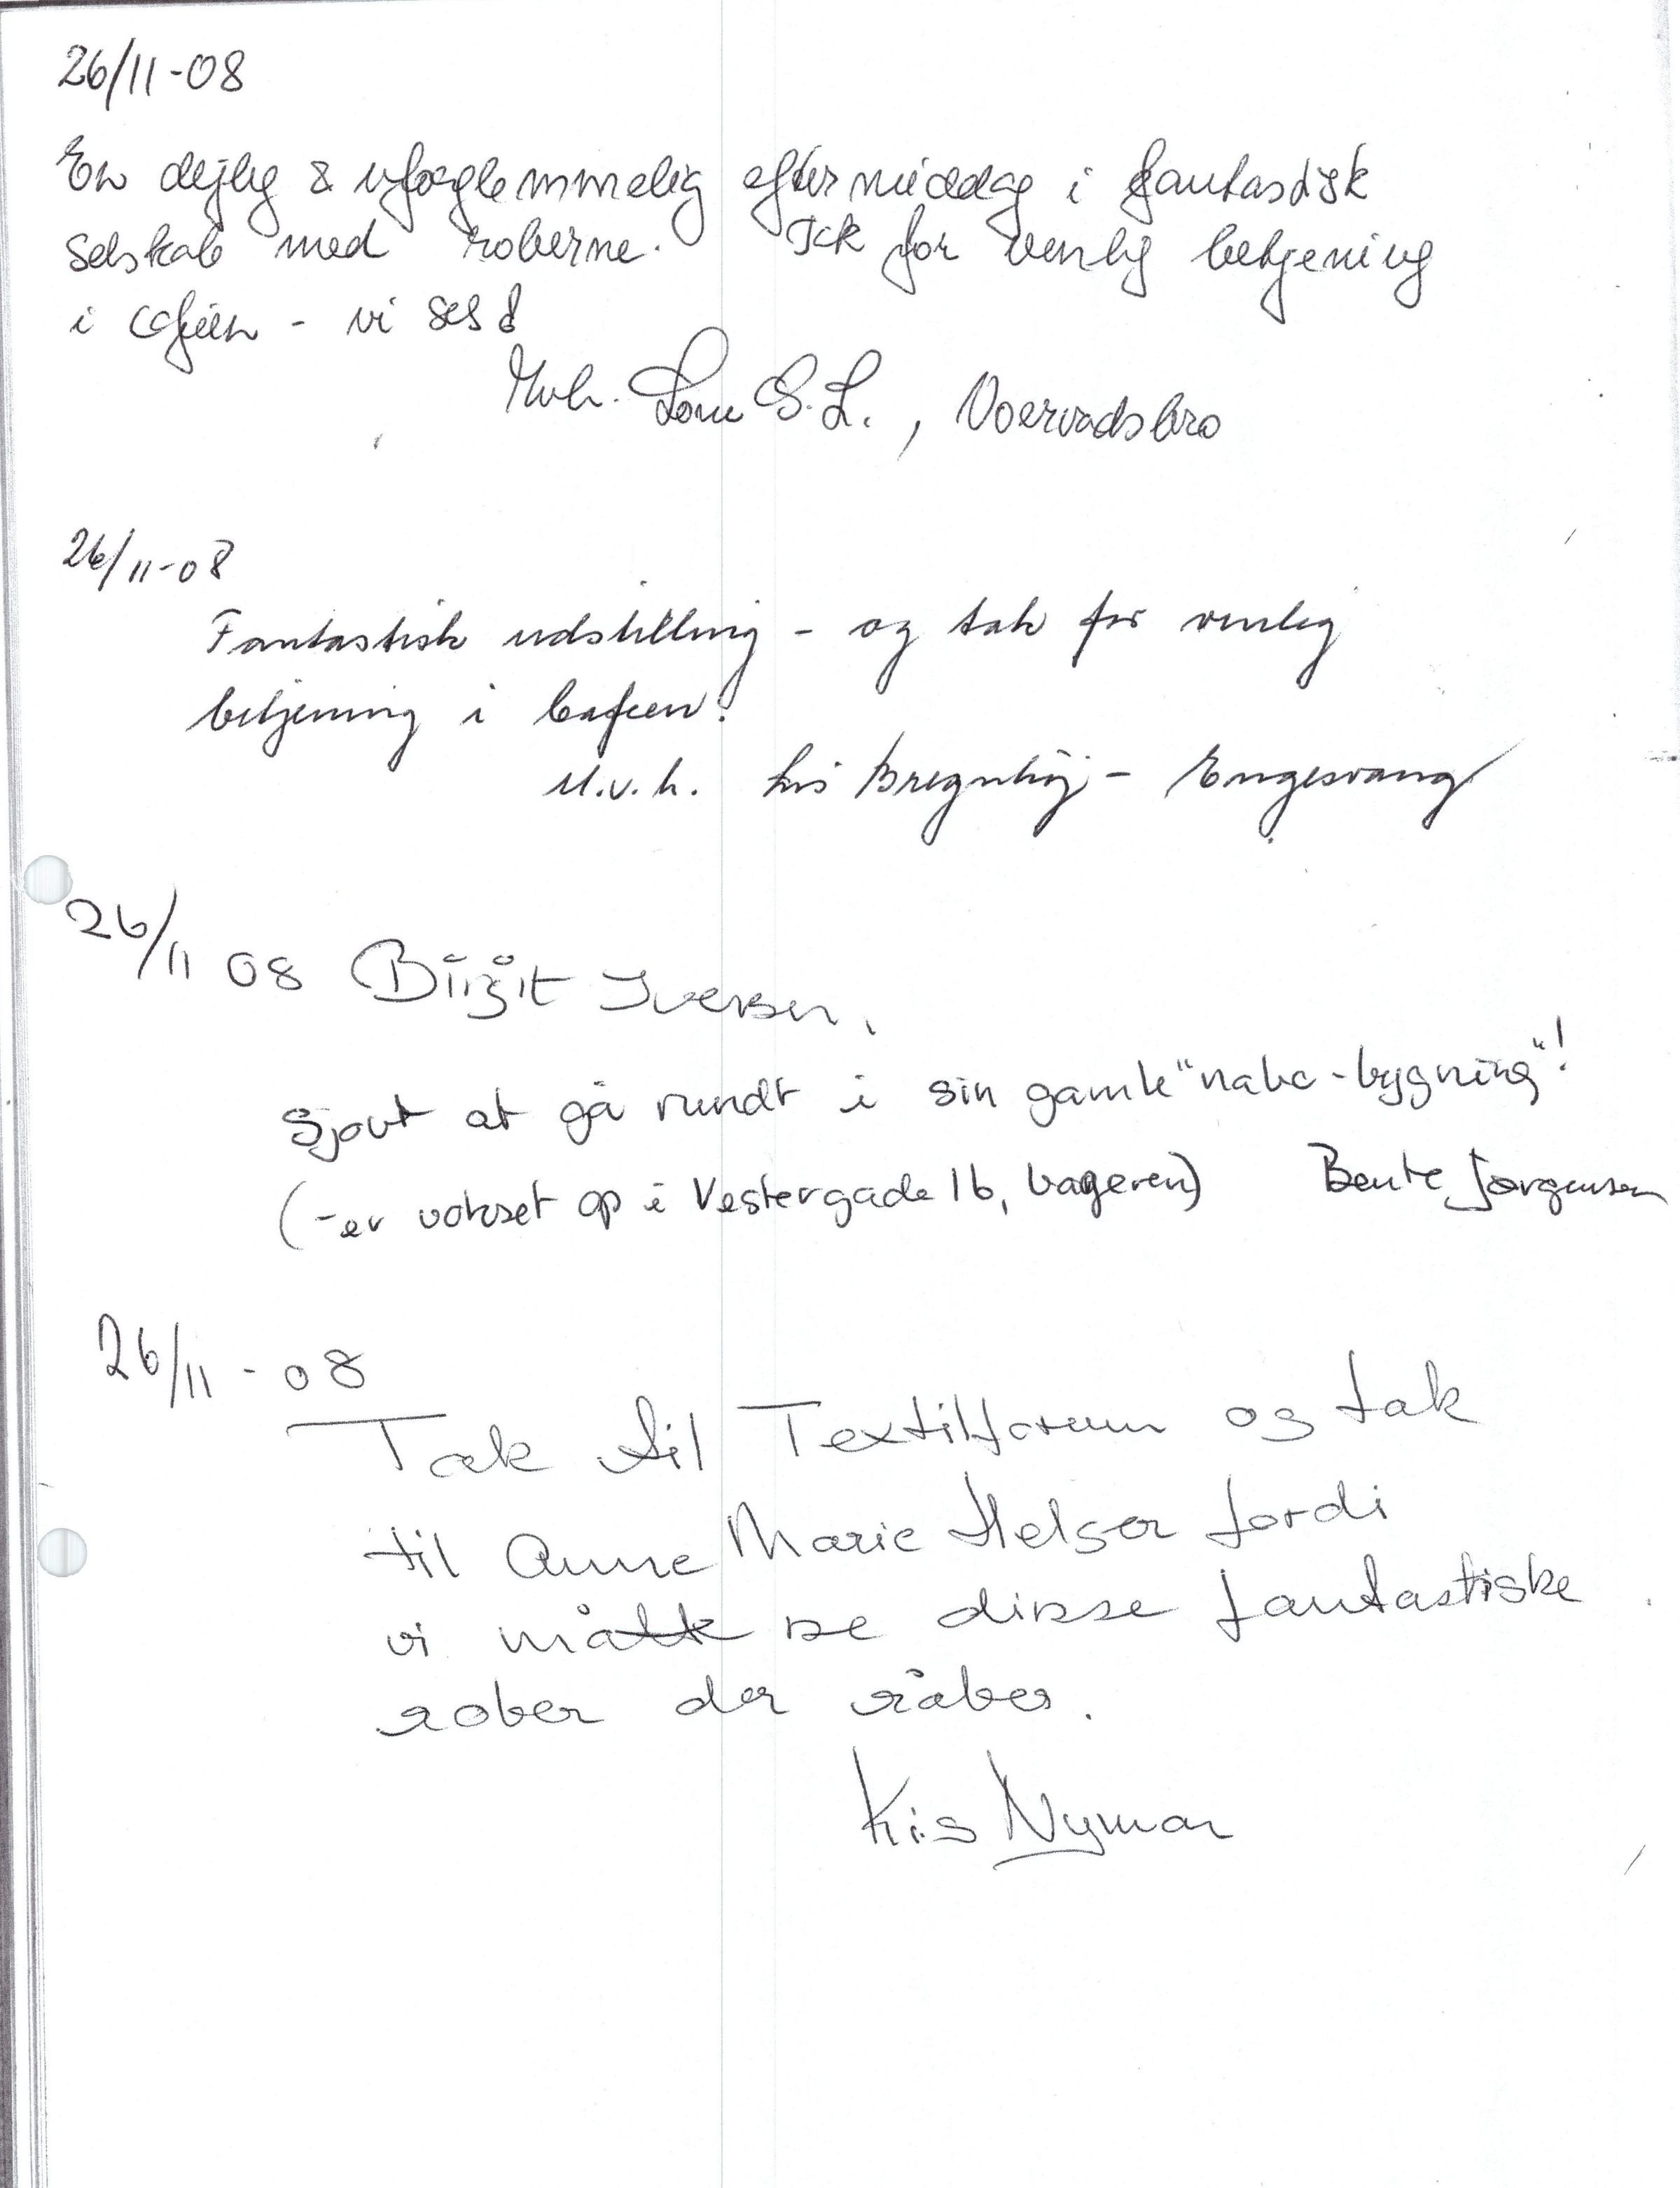 26/11-08
En dejlig & uforglemmelig eftermiddag i fantastisk
selskab med roberne. Tak for venlig betjening
i caféen - vi ses!
Mvh. Lone S.L., Voervadsbro
26/11-08
Fantastisk udstilling - og tak for venlig
betjening i cafeen!
M.v.h. Lis Bregnhøj - Engesvang
26/11 08 Birgit Iversen.
Sjovt at gå rundt i sin gamle "nabo-bygning"!
(-er vokset op i Vestergade 16, bageren) Bente Jørgensen
26/11-08
Tak til Textilforum og tak
til Anne Marie Helger fordi
vi måtte se disse fantastiske
rober der råber.
Kis Nyman